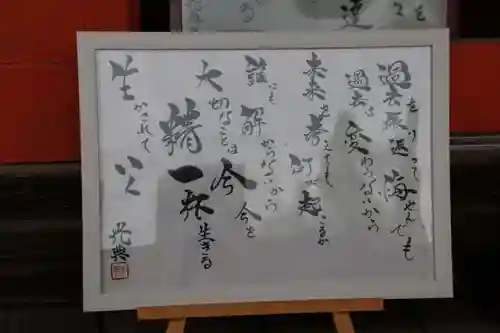 過去を振り返って悔やんでも
過去は変わらないから
未来を考えても何が起こるか
誰にも解からないから
大切なことは今 今を
精一杯生きる
生かされて